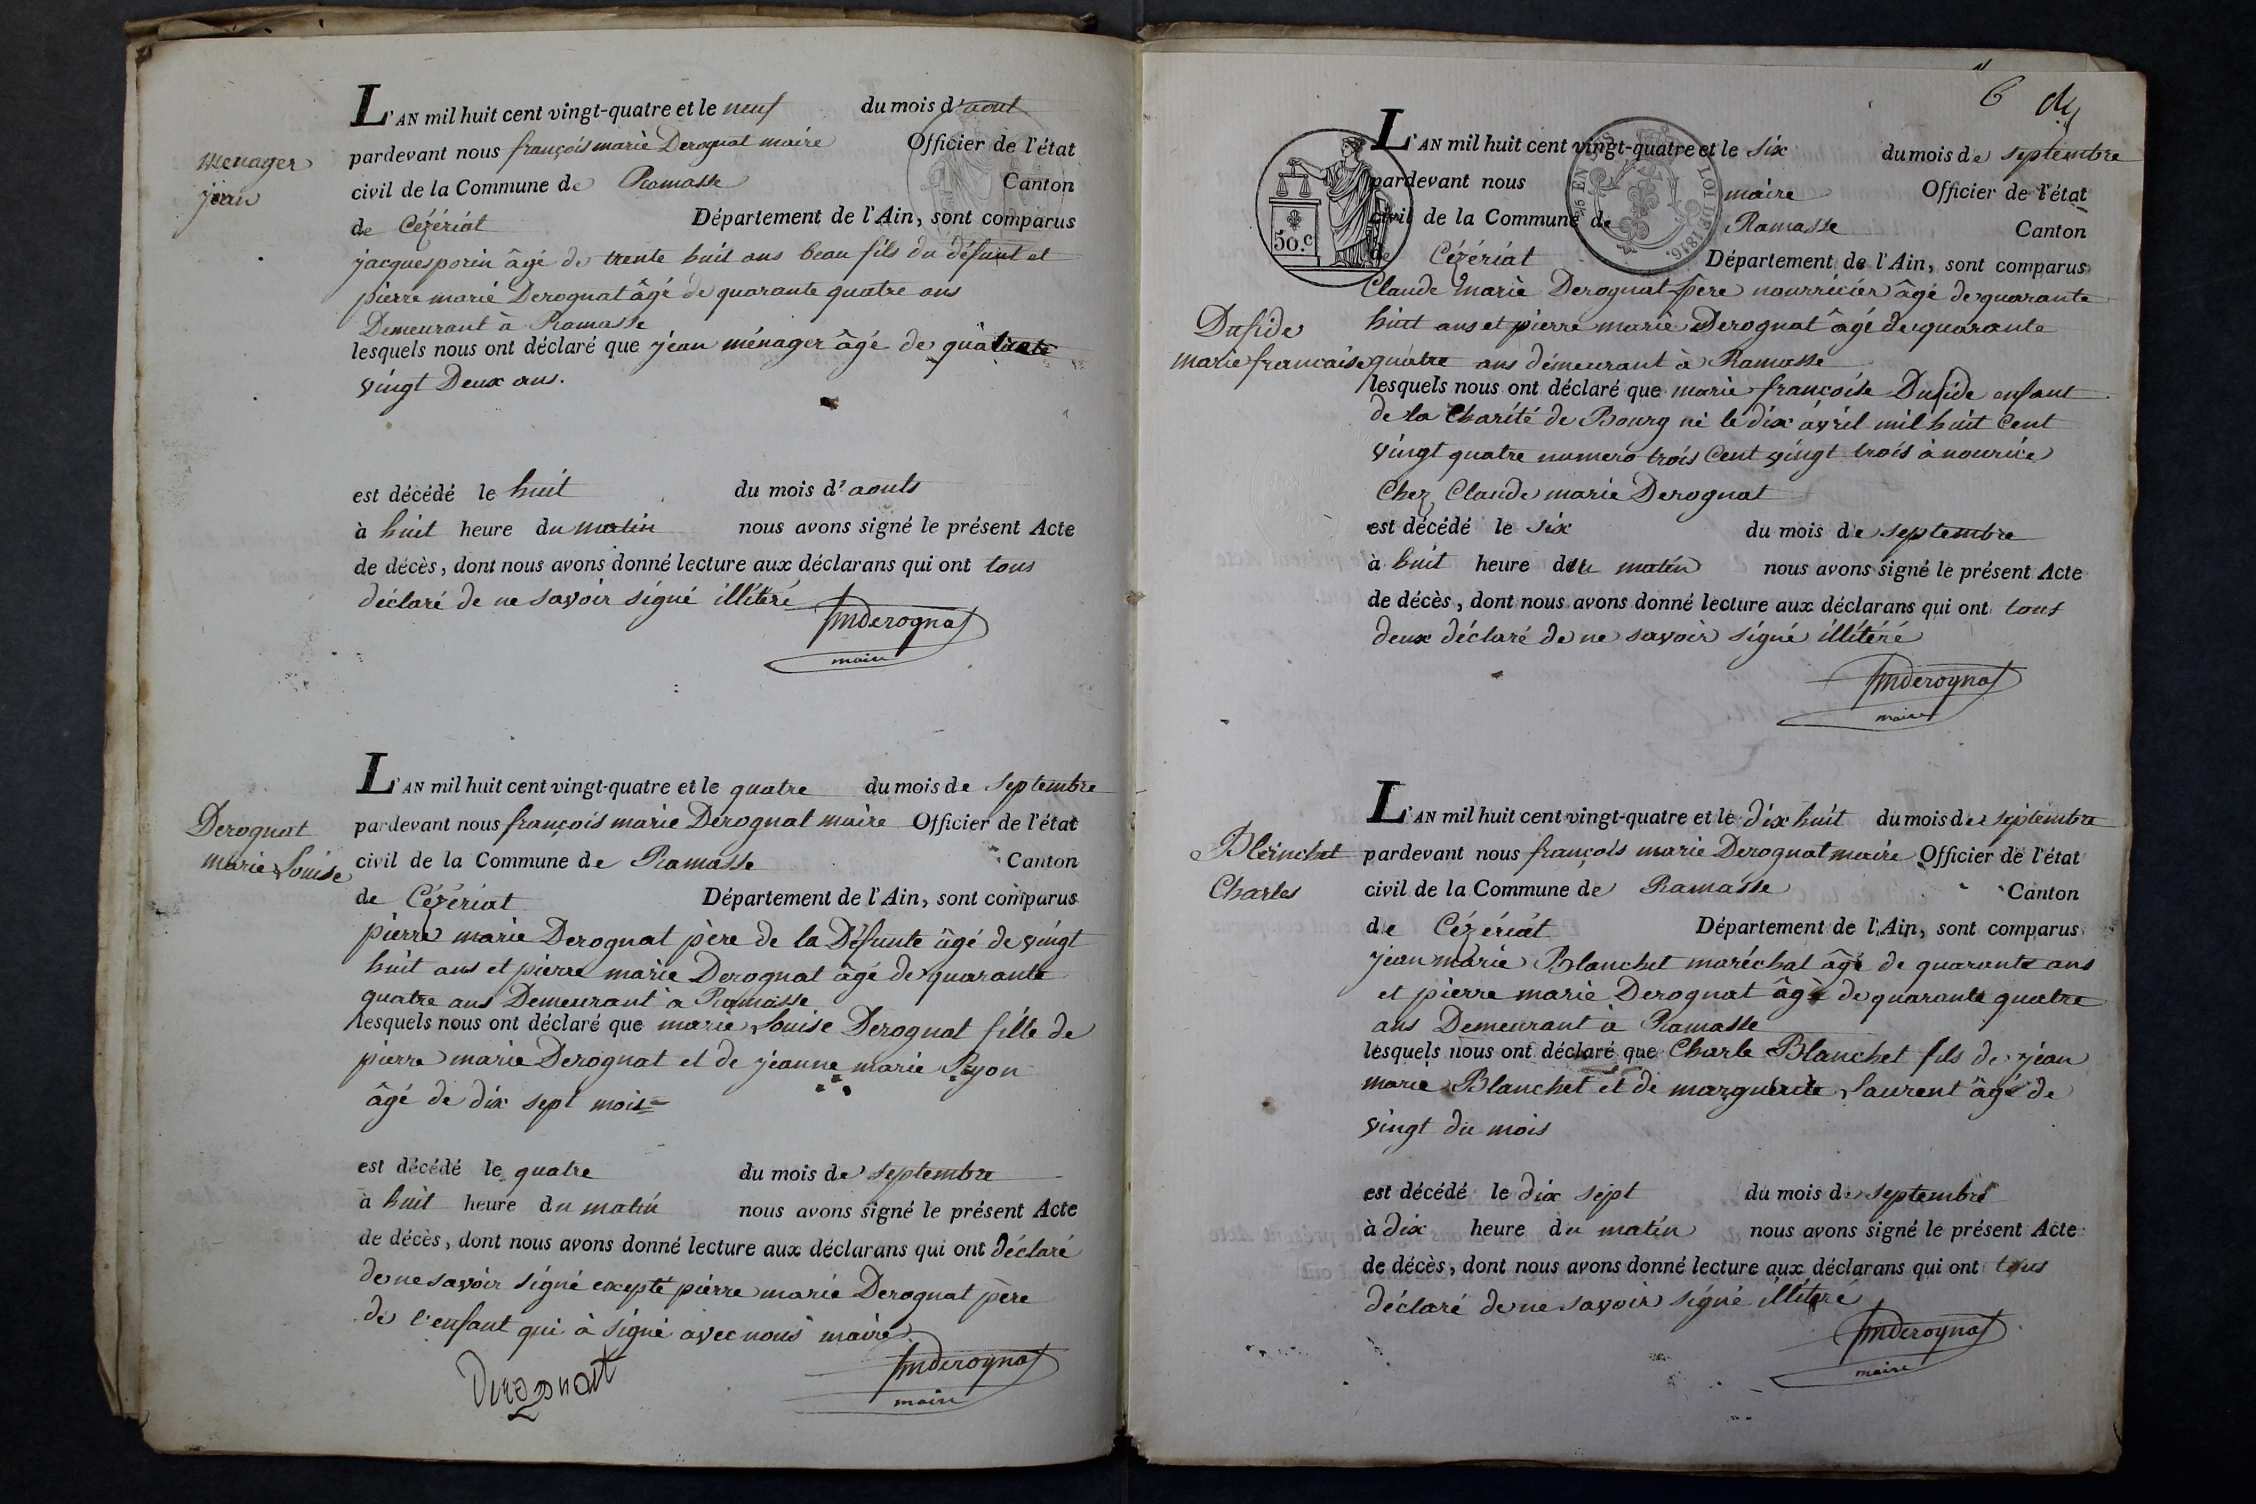 L'AN mil huit cent vingt-quatre et le neuf du mois d'aout
pardevant nous françois marie Derognat maire Officier de l'état
civil de la Commune de Ramasse Canton
de Cézériat Département de l'Ain, sont comparus
jacques porin âgé de trente huit ans beau fils du défunt et
pierre marie Derognat âgé de quarante quatre ans
Demeurant à Ramasse
lesquels nous ont déclaré que jean ménager âgé de
vingt Deux ans.
menager
jean
est décédé le huit du mois d'aouts
à huit heure du matin nous avons signé le présent Acte
de décès, dont nous avons donné lecture aux déclarans qui ont tous
déclaré de ne savoir signé illitéré
fmderognat
maire
L'AN mil huit cent vingt-quatre et le quatre du mois de septembre
pardevant nous françois marie Derognat maire Officier de l'état
civil de la Commune de Ramasse Canton
de Cézériat Département de l'Ain, sont comparus
pierre marie Derognat père de la Défunte âgé de vingt
huit ans et pierre marie Derognat âgé de quarante
quatre ans Demeurant a Ramasse
lesquels nous ont déclaré que marie Louise Derognat fille de
pierre marie Derognat et de jeanne marie
âgé de dix sept mois
Derognat
marie Louise
est décédé le quatre du mois de septembre
à huit heure du matin nous avons signé le présent Acte
de décès, dont nous avons donné lecture aux déclarans qui ont déclaré
de ne savoir signé excepté pierre marie Derognat père
de l'enfant qui à signé avec nous maire
Derognat
fmderognat
maire
6
50.c
LOI DE 1816.
L'AN mil huit cent vingt-quatre et le six du mois de septembre
pardevant nous maire Officier de l'état
civil de la Commune de Ramasse Canton
de Cézériat Département de l'Ain, sont comparus
Claude marie Derognat père nourrecier âgé de quarante
huit ans et pierre marie Derognat âgé de quarante
quatre ans démeurant à Ramasse
lesquels nous ont déclaré que marie françoise Duside enfant
de la Charité de Bourg né le dix avril mil huit Cent
vingt quatre numero trois Cent vingt trois à nourice
Chez Claude marie Derognat
Duside
marie francaise
est décédé le six du mois de septembre
à huit heure du matin nous avons signé le présent Acte
de décès, dont nous avons donné lecture aux déclarans qui ont tous
deux déclaré de ne savoir signé illitéré
fmderognat
maire
L'AN mil huit cent vingt-quatre et le dix huit du mois de septembre
pardevant nous françois marie Derognat maire Officier de l'état
civil de la Commune de Ramasse Canton
de Cézériat Département de l'Ain, sont comparus
jean marie Blanchet maréchal âgé de quarante ans
et pierre marie Derognat âgé de quarante quatre
ans Demeurant à Ramasse
lesquels nous ont déclaré que Charle Blanchet fils de jean
marie Blanchet et de marguerite Laurent âgé de
vingt du mois
Charles
est décédé le dix sept du mois de septembre
à dix heure du matin nous avons signé le présent Acte
de décès, dont nous avons donné lecture aux déclarans qui ont tous
déclaré de ne savoir signé illitéré
fmderognat
maire